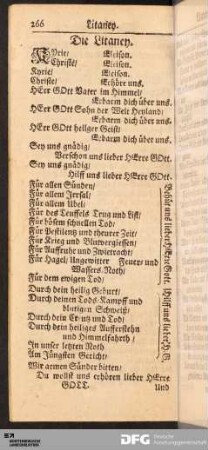 266 Litaney.
Die Litaney.
Kyrie/ Eleison.
Christe/ Eleison.
Kyrie/ Eleison.
Christe/ Erhöre uns.
HErr GOtt Vater im Himmel/
Erbarm dich über uns.
HErr GOtt Sohn der Welt Heyland/
Erbarm dich über uns.
HErr GOtt heilger Geist/
Erbarm dich über uns.
Sey uns gnädig/
Verschon uns lieber HErre GOtt.
Sey uns gnädig/
Hilff uns lieber HErre GOtt.
Für allen Sünden/
Für allem Irrsal/
Für allem Ubel/
Für des Teuffels Trug und List/
Für bösem schnellen Tod/
Für Pestilentz und theurer Zeit/
Für Krieg und Blutvergiessen/
Für Auffruhr und Zwietracht/
Für Hagel/ Ungewitter Feuer und
Wassers-Noth/
Für dem ewigen Tod/
Behüt uns lieber HErre Gott.
Durch dein heilig Geburt/
Durch deinen Tods-Kampff und
blutigen Schweiß/
Durch dein Creutz und Tod/
Durch dein heiliges Aufferstehn
und Himmelfahrt/
In unser letzten Noth
Am Jüngsten Gericht/
Hilff uns lieber H. G.
Wir armen Sünder bitten/
Du wollst uns erhören lieber HErre
GOTT. Und
DFG Deutsche
Forschungsgemeinschaft